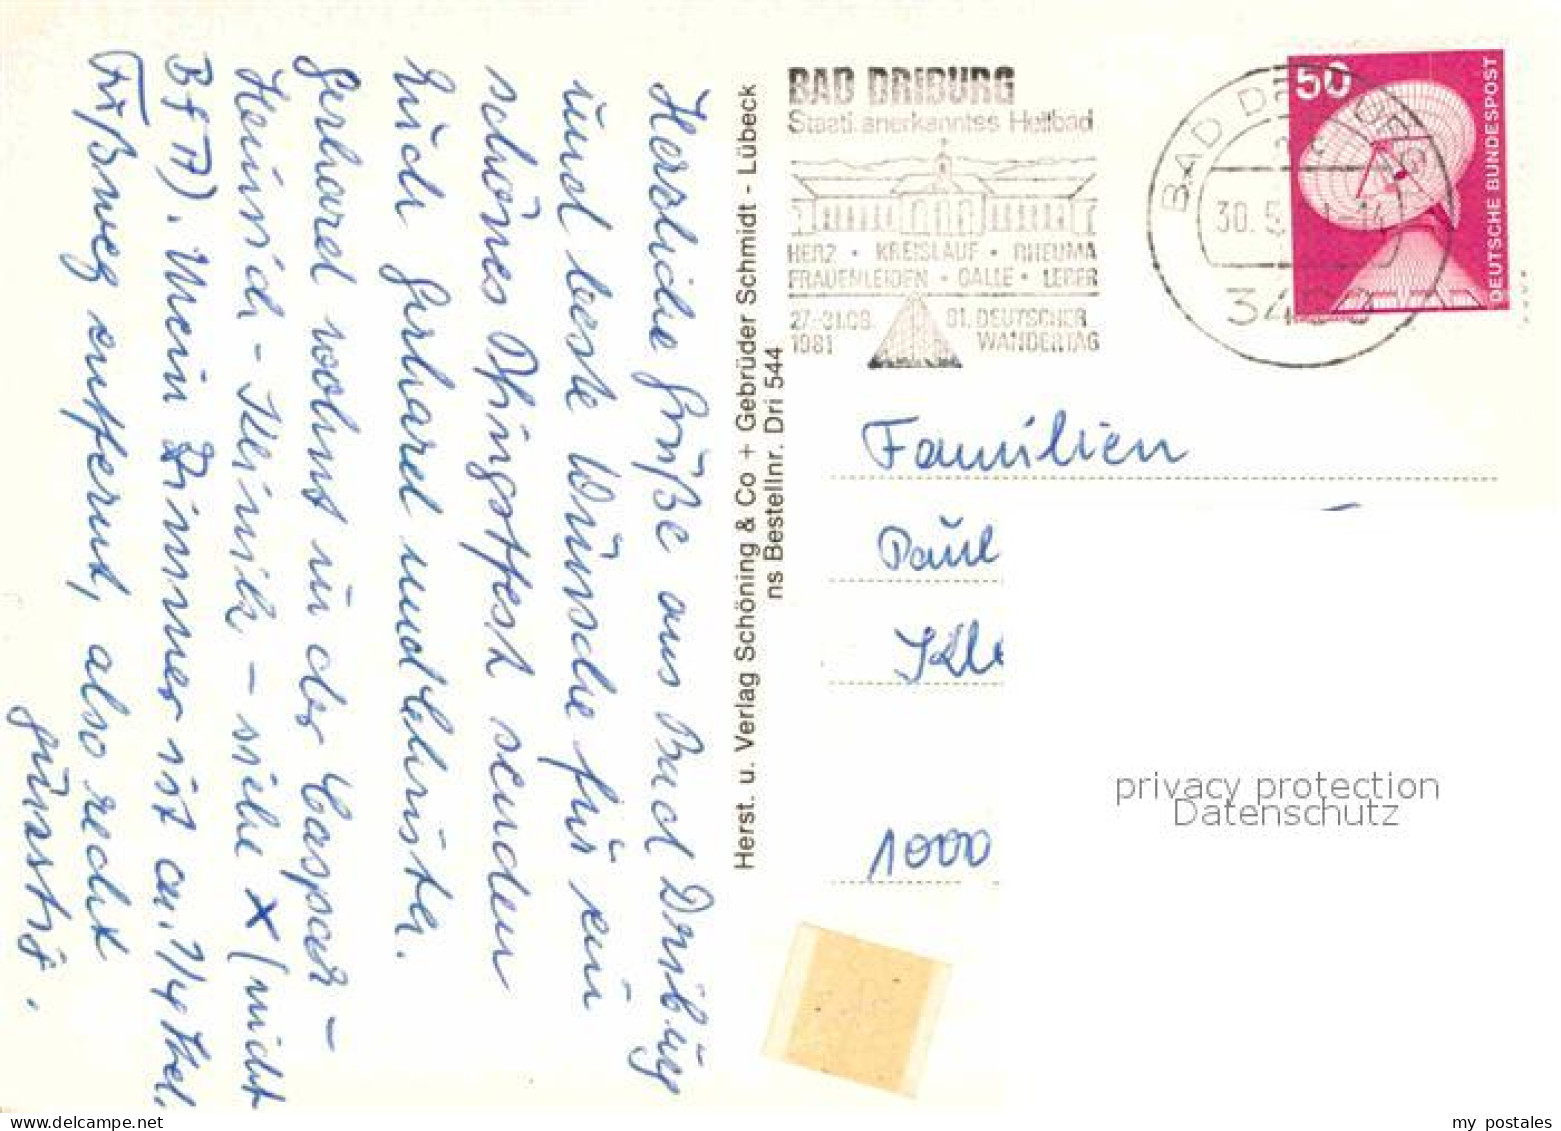 Herzliche Grüße aus Bad Driburg
und beste Wünsche für ein
schönes Pfingstfest senden
Euch Gerhard und Christa.
Gerhard wohnt in der Caspar-
Heinrich-Klinik - siehe X (nicht
BfA). Mein Zimmer ist ca. 1/4 Std.
Fußweg entfernt, also recht
günstig.
Herst. u. Verlag Schöning & Co + Gebrüder Schmidt - Lübeck
ns Bestellnr. Dri 544
BAD DRIBURG
Staatl. anerkanntes Heilbad
HERZ · KREISLAUF · RHEUMA
FRAUENLEIDEN · GALLE · LEBER
27.-31.08. 81. DEUTSCHER
1981 WANDERTAG
BAD DRIBURG
30.5.
50
DEUTSCHE BUNDESPOST
Familien
Paul
Kle
1000
privacy protection
Datenschutz
my postales